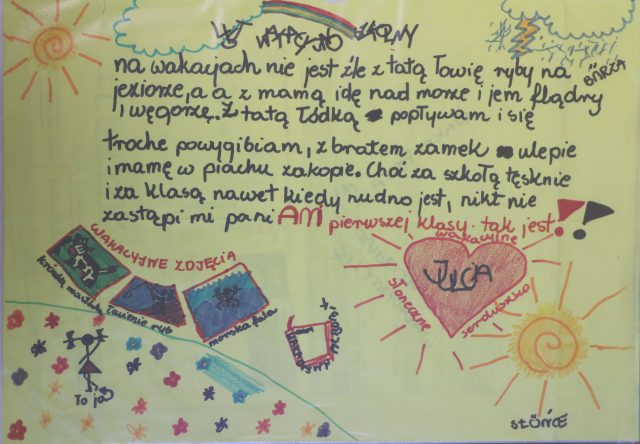 na wakacjach nie jest źle z tatą łowię ryby na
jeziorze, a a z mamą idę nad morze i jem flądry
i węgorze. Z tatą łódką popływam i się
BÓRZA
troche powygibiam, z bratem zamek ulepie
i mamę w piachu zakopie. Choć za szkołą tęsknie
i za klasą nawet kiedy nudno jest, nikt nie
zastąpi mi pani AM pierwszej klasy tak jest!
WAKACYJNE ZDJĘCIA
łowienie ryb
morska fala
To ja
wakacyjne
słoneczne
serduszko
JULCA
SŁOŃCE